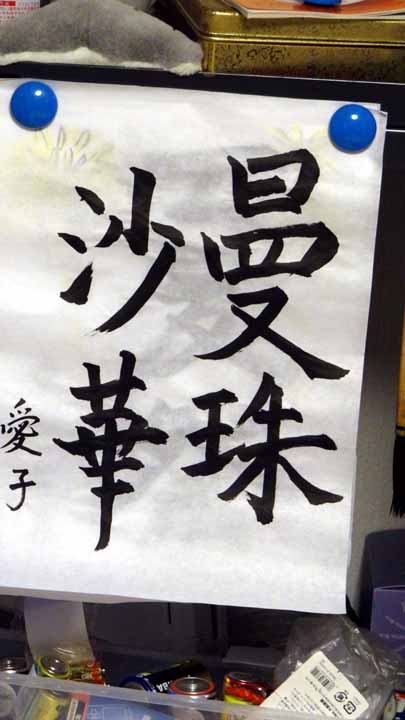 曼珠
沙華
愛子